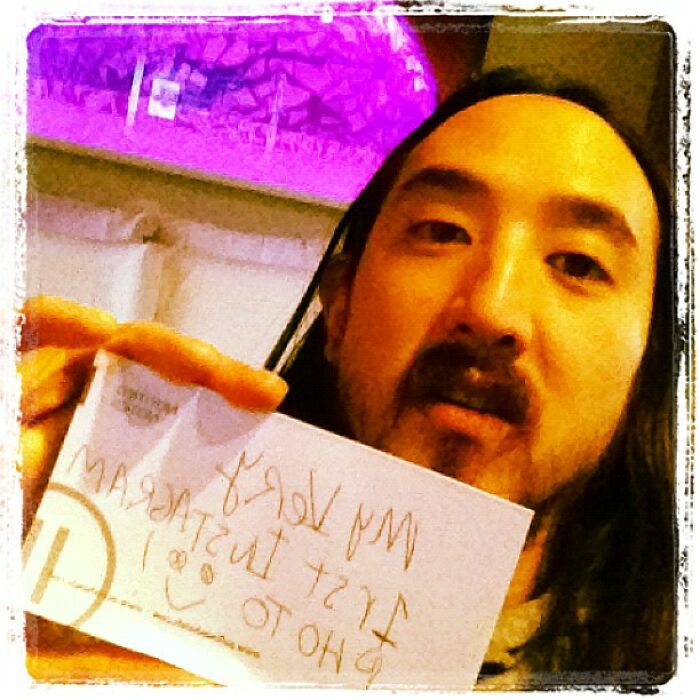 My VeRy
1rst INSTAGRAM
PHOTO !